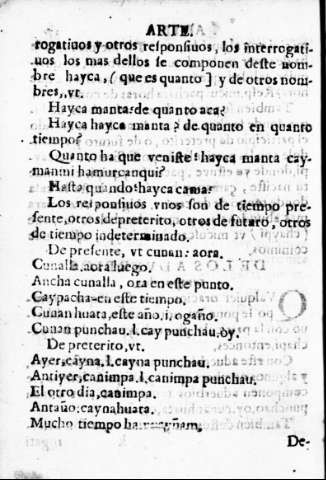 ARTE.
rogatiuos y otros responsiuos, los interrogati-
uos los mas dellos se componen deste nom-
bre hayca, ( que es quanto ] y de otros nom-
bres, vt.
Hayca manta: de quanto aca?
Hayca hayca manta ? de quanto en quanto
tiempo?
Quanto ha que veniste? hayca manta cay-
manmi hamurcanqui?
Hasta quando? hayca cama?
Los responsiuos vnos son de tiempo pre-
sente, otros de preterito, otros de futuro, otros
de tiempo indeterminado.
De presente, vt cunan: aora.
Cunalla, aora luego.
Ancha cunalla, ora en este punto.
Caypacha-en este tiempo.
Cunan huata, este año, i, ogaño.
Cunan punchau. l. cay punchau, oy.
De preterito, vt.
Ayer, cayna, l. cayna punchau.
Antiyer, canimpa. l. canimpa punchau.
El otro dia, canimpa.
Antaño: caynahuata.
Mucho tiempo ha
De-